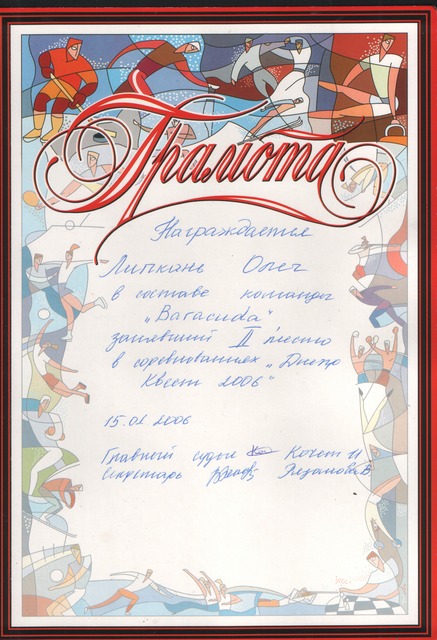 Грамота
Награждается
Липкань Олег
в составе команды
„Baracuda"
занявший II место
в соревнованиях „Днепр
Квест 2006"
15.02 2006
Главный судья Кочет И
Секретарь В